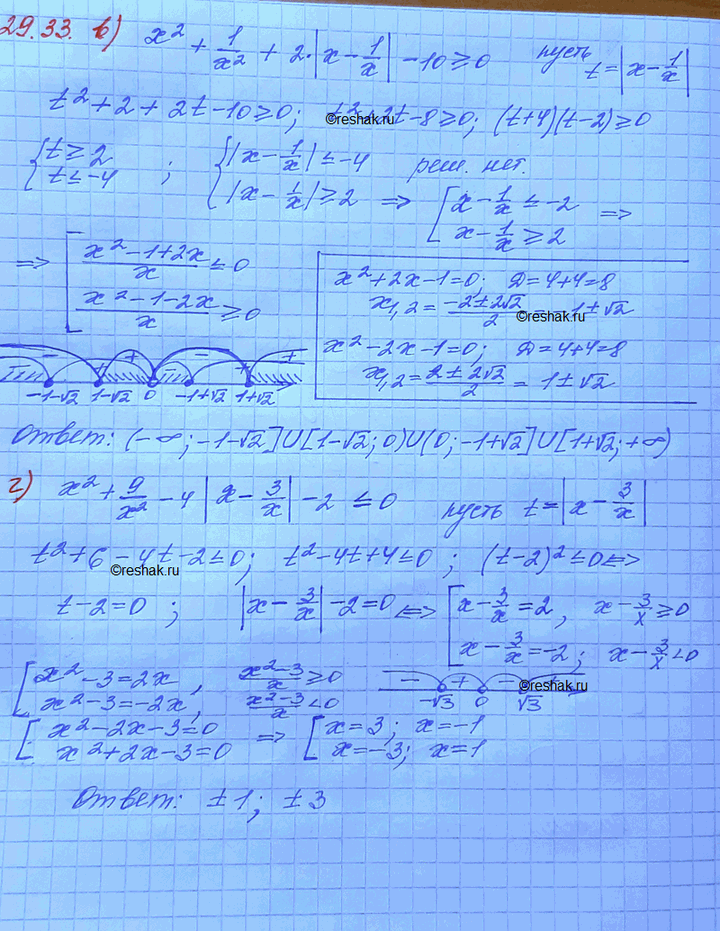 29.33. в) x² + 1/x² + 2·|x − 1/x| − 10 ≥ 0 пусть t = |x − 1/x|
t² + 2 + 2t − 10 ≥ 0; t² + 2t − 8 ≥ 0; (t+4)(t−2) ≥ 0
©reshak.ru
{ t ≥ 2 ; { |x − 1/x| ≤ −4 реш. нет.
t ≤ −4 |x − 1/x| ≥ 2 => [ x − 1/x ≤ −2 =>
x − 1/x ≥ 2
=> [ (x² − 1 + 2x)/x ≤ 0
(x² − 1 − 2x)/x ≥ 0
x² + 2x − 1 = 0; D = 4+4 = 8
x₁,₂ = (−2 ± 2√2)/2 = −1 ± √2
©reshak.ru
x² − 2x − 1 = 0; D = 4+4 = 8
x₁,₂ = (2 ± 2√2)/2 = 1 ± √2
− + − +
−1−√2 1−√2 0 −1+√2 1+√2
Ответ: (−∞; −1−√2] U [1−√2; 0) U (0; −1+√2] U [1+√2; +∞)
г) x² + 9/x² − 4 |x − 3/x| − 2 ≤ 0 пусть t = |x − 3/x|
t² + 6 − 4t − 2 ≤ 0; t² − 4t + 4 ≤ 0; (t−2)² ≤ 0 <=>
©reshak.ru
t − 2 = 0 ; |x − 3/x| − 2 = 0 <=> [ x − 3/x = 2, x − 3/x ≥ 0
x − 3/x = −2; x − 3/x < 0
[ x² − 3 = 2x , (x²−3)/x ≥ 0
x² − 3 = −2x, (x²−3)/x < 0
− + − +
−√3 0 √3
©reshak.ru
[ x² − 2x − 3 = 0 => [ x = 3; x = −1
x² + 2x − 3 = 0 x = −3; x = 1
Ответ: ±1; ±3